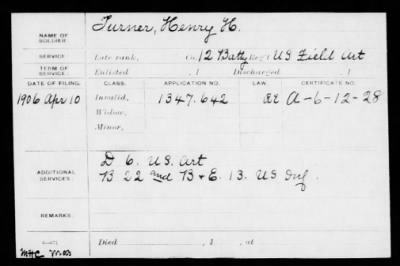 NAME OF SOLDIER: Turner, Henry H.
SERVICE: Late rank, Co. 12 Batty Reg't US Field Art
TERM OF SERVICE: Enlisted , 1 Discharged , 1
DATE OF FILING. CLASS. APPLICATION NO. LAW. CERTIFICATE NO.
1906 Apr 10 Invalid, 1347.642 A-6-12-28
Widow,
Minor,
ADDITIONAL SERVICES: D 6. U.S. Art
B 22 and B & E. 13. US Inf.
REMARKS:
Died , 1 , at